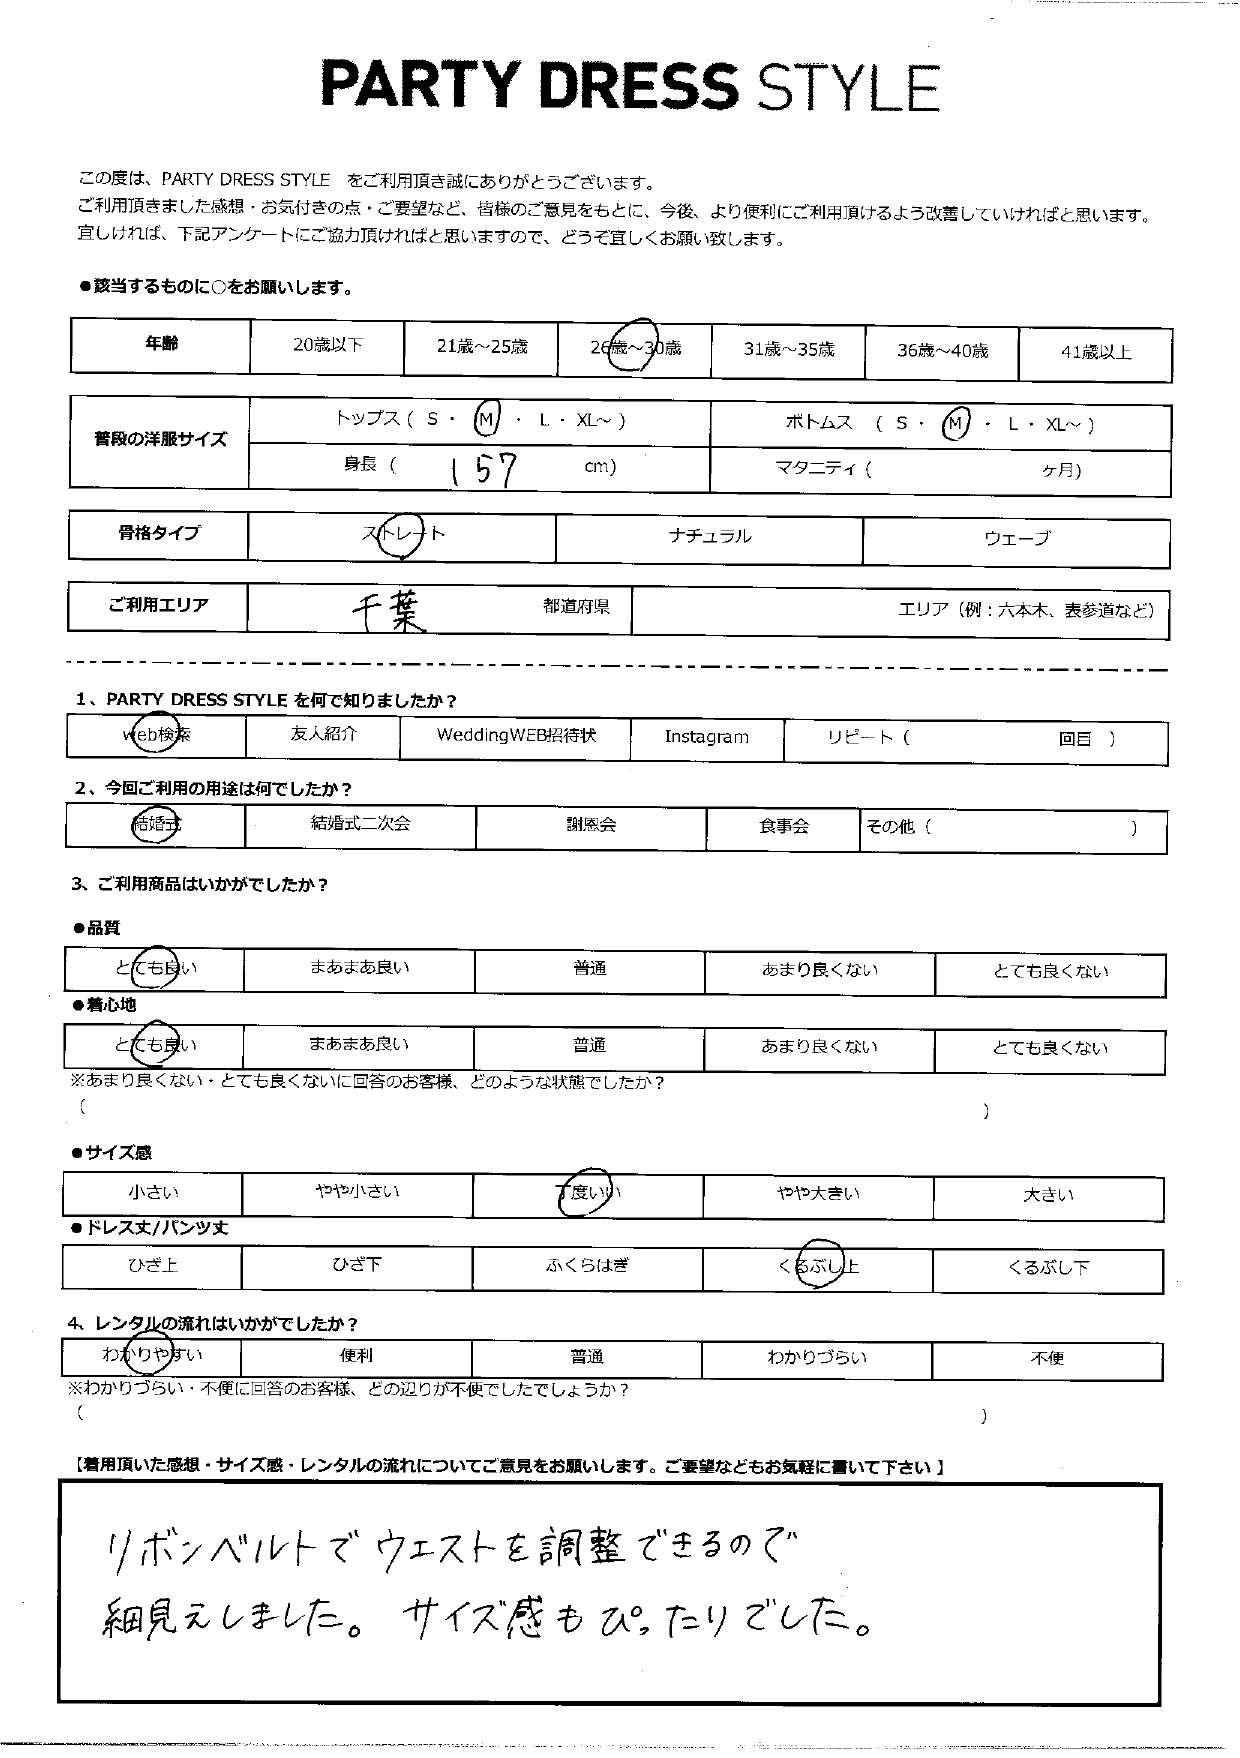 PARTY DRESS STYLE
この度は、PARTY DRESS STYLE をご利用頂き誠にありがとうございます。
ご利用頂きました感想・お気付きの点・ご要望など、皆様のご意見をもとに、今後、より便利にご利用頂けるよう改善していければと思います。
宜しければ、下記アンケートにご協力頂ければと思いますので、どうぞ宜しくお願い致します。
●該当するものに○をお願いします。
年齢 20歳以下 21歳～25歳 26歳～30歳 31歳～35歳 36歳～40歳 41歳以上
普段の洋服サイズ トップス ( S ・ M ・ L ・ XL～ ) ボトムス ( S ・ M ・ L ・ XL～ )
身長 ( 157 cm) マタニティ ( ヶ月)
骨格タイプ ストレート ナチュラル ウェーブ
ご利用エリア 千葉 都道府県 エリア（例：六本木、表参道など）
1、PARTY DRESS STYLE を何で知りましたか？
web検索 友人紹介 WeddingWEB招待状 Instagram リピート ( 回目 )
2、今回ご利用の用途は何でしたか？
結婚式 結婚式二次会 謝恩会 食事会 その他 ( )
3、ご利用商品はいかがでしたか？
●品質
とても良い まあまあ良い 普通 あまり良くない とても良くない
●着心地
とても良い まあまあ良い 普通 あまり良くない とても良くない
※あまり良くない・とても良くないに回答のお客様、どのような状態でしたか？
( )
●サイズ感
小さい やや小さい 丁度いい やや大きい 大きい
●ドレス丈/パンツ丈
ひざ上 ひざ下 ふくらはぎ くるぶし上 くるぶし下
4、レンタルの流れはいかがでしたか？
わかりやすい 便利 普通 わかりづらい 不便
※わかりづらい・不便に回答のお客様、どの辺りが不便でしたでしょうか？
( )
【着用頂いた感想・サイズ感・レンタルの流れについてご意見をお願いします。ご要望などもお気軽に書いて下さい】
リボンベルトでウエストを調整できるので
細見えしました。サイズ感もぴったりでした。